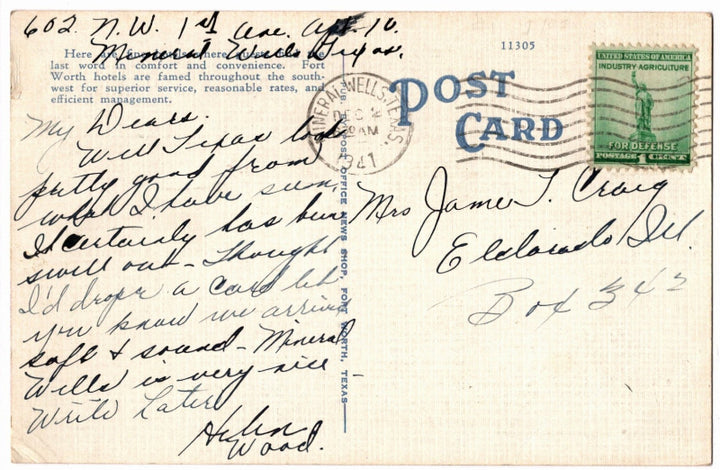 602 N.W. 1st Ave. Apt. 10.
Mineral Wells, Texas.
Here are fine hotels where guests find the
last word in comfort and convenience. Fort
Worth hotels are famed throughout the south-
west for superior service, reasonable rates, and
efficient management.
11305
POST
CARD
UNITED STATES OF AMERICA
INDUSTRY AGRICULTURE
FOR DEFENSE
POSTAGE 1 CENT
MINERAL WELLS, TEXAS.
DEC 2
AM
1941
My Dears.
Well Texas looks
pretty good from
what I have seen,
It certainly has been
swell out - Thought
I'd drop a card let
you know we arrived
safe & sound - Mineral
Wells is very nice -
Write Later
Helen
Wood.
Mrs James T. Craig
Eldorado, Ill.
Box 342
POST OFFICE NEWS SHOP, FORT WORTH, TEXAS